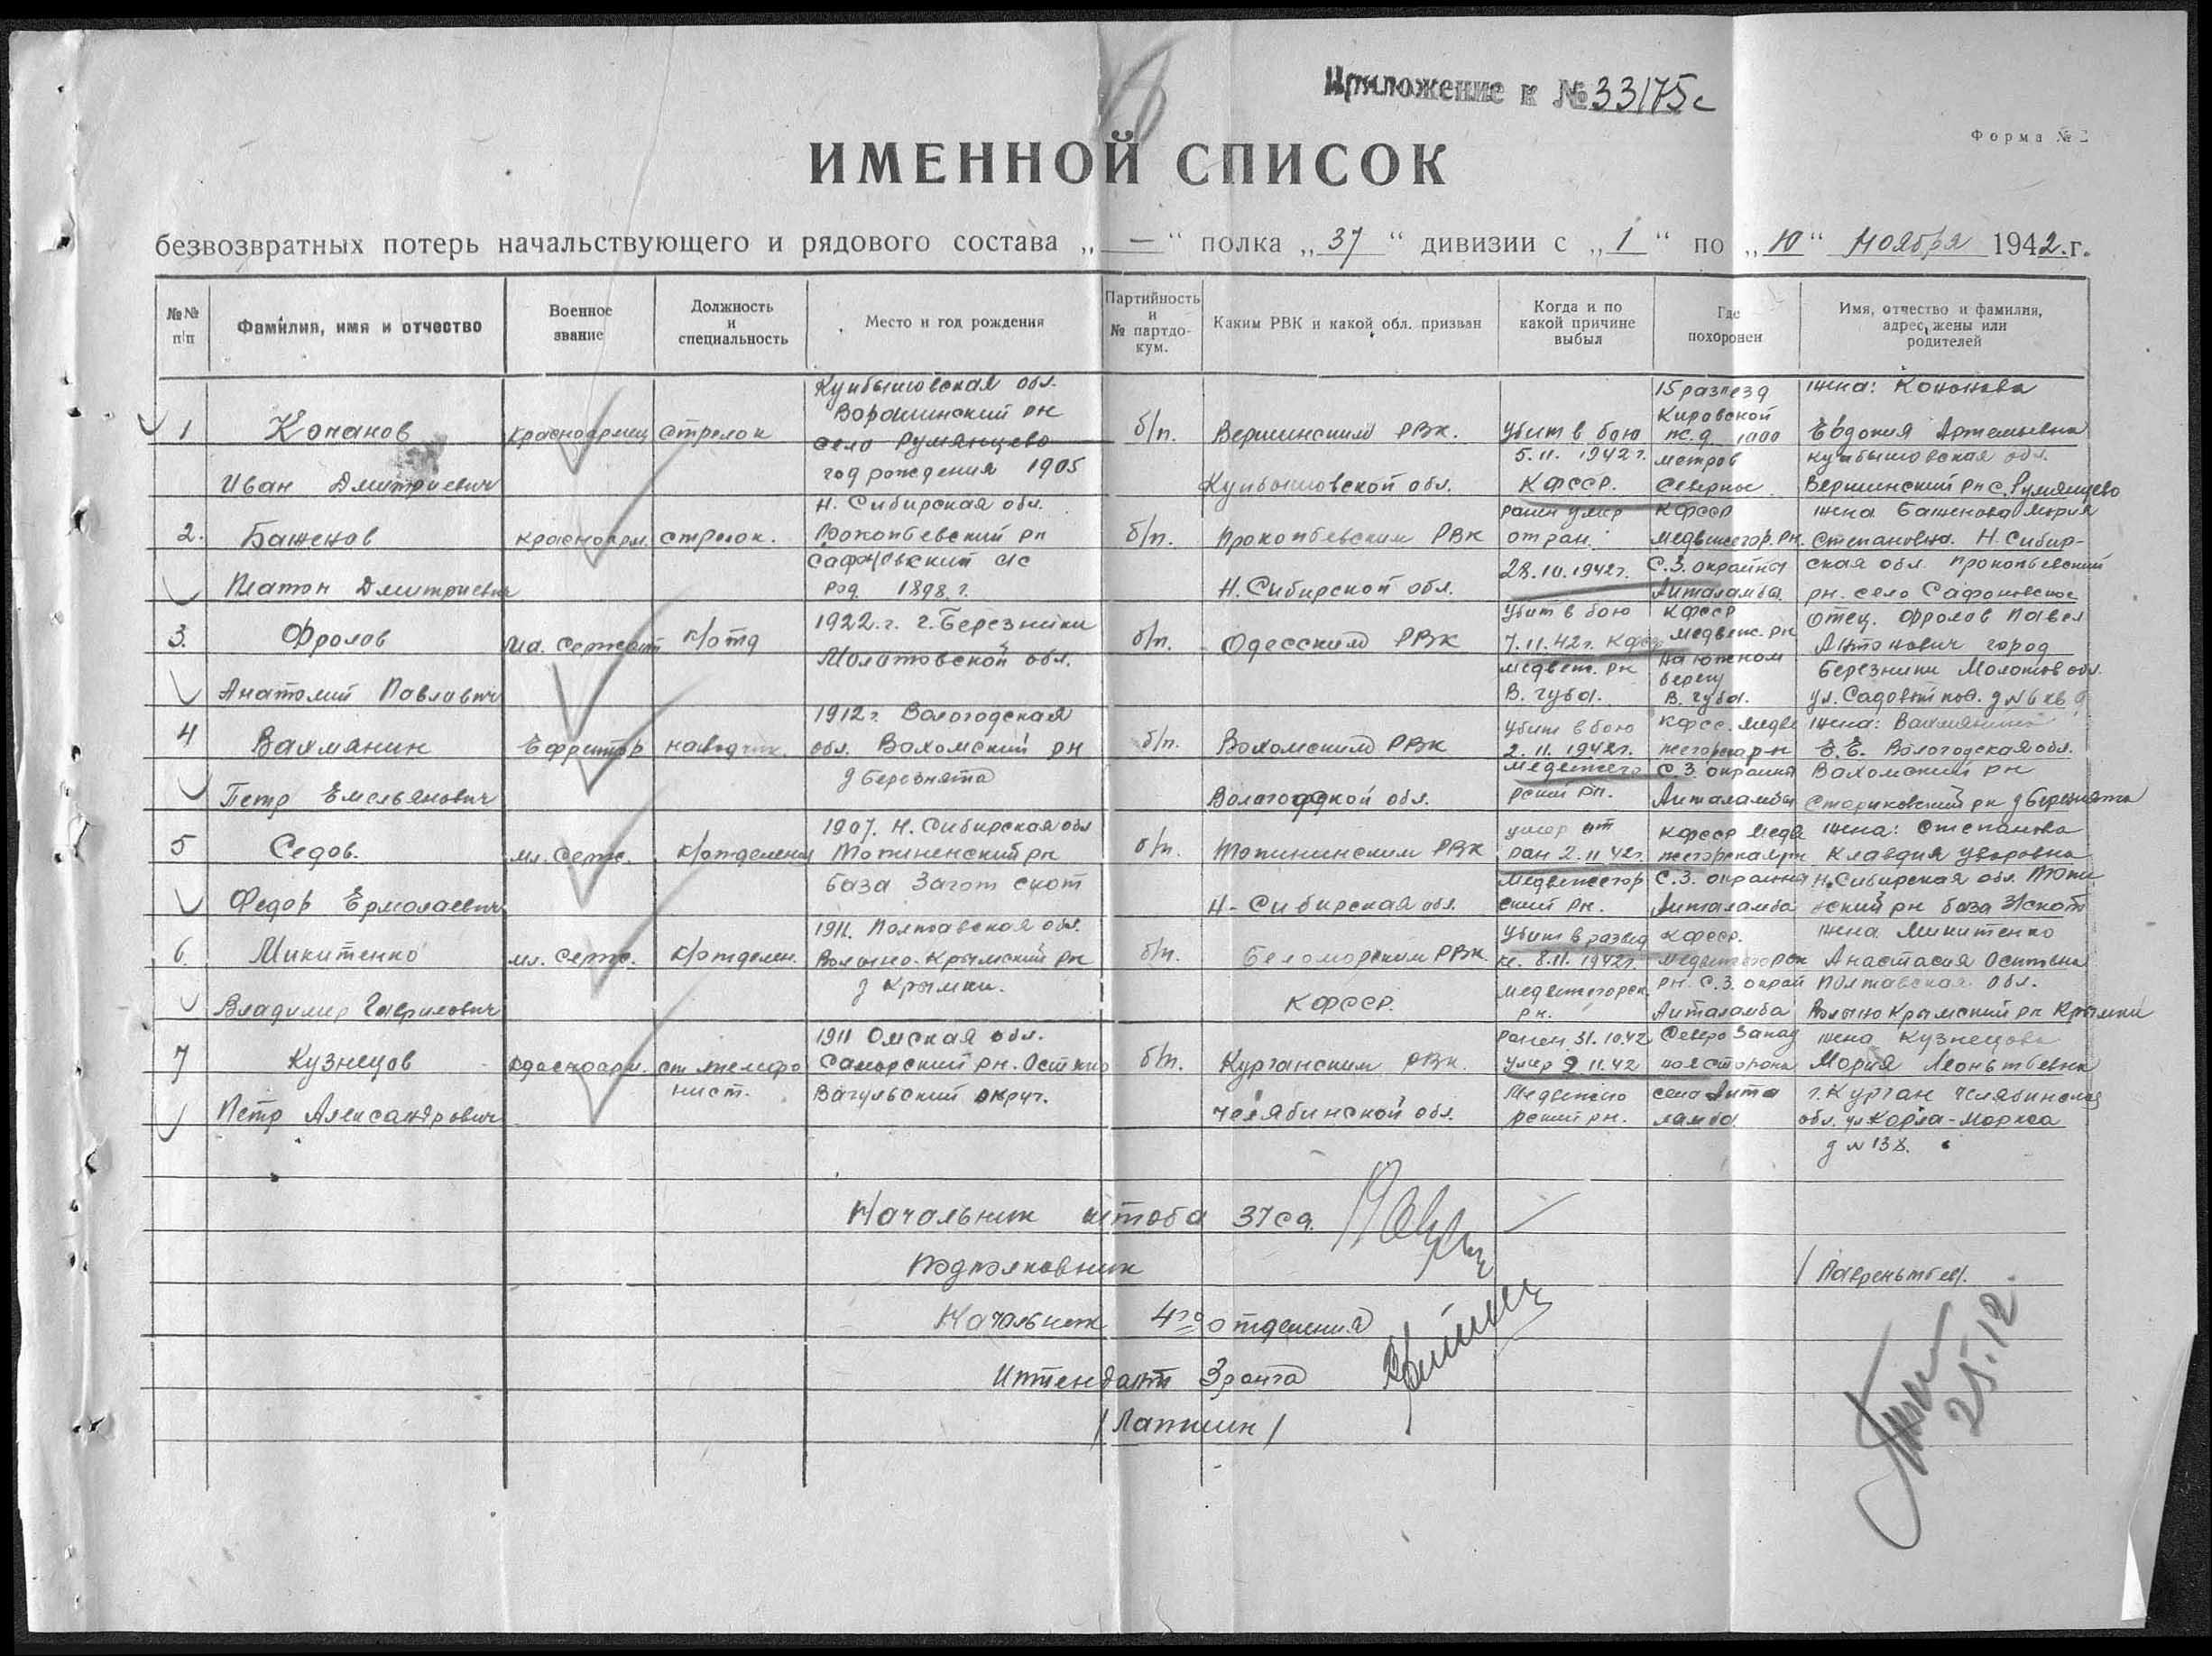 Приложение к № 33175с
Форма № 2
ИМЕННОЙ СПИСОК
безвозвратных потерь начальствующего и рядового состава „ — “ полка „ 37 “ дивизии с „ 1 “ по „ 10 “ Ноября 1942.г.
№№ п/п
Фамилия, имя и отчество
Военное звание
Должность и специальность
Место и год рождения
Партийность и № партдокум.
Каким РВК и какой обл. призван
Когда и по какой причине выбыл
Где похоронен
Имя, отчество и фамилия, адрес жены или родителей
1
Иван Дмитриевич
красноармеец
стрелок
Куйбышевская обл.
село Румянцево
год рождения 1905
б/п.
Вершинским РВК.
Куйбышовской обл.
Убит в бою
5.11. 1942 г.
КФССР.
15 разъезд
Кировской
ж.д. 1000
метров
Севернее
жена: Кононова
Евдокия Артемьевна
куйбышовская обл.
Вершинский рн с. Румянцево
2.
Баженов
Платон Дмитриевич
красноарм.
стрелок.
Н. Сибирская обл.
Прокопьевский рн
Сафоновский с/с
род 1898 г.
б/п.
Прокопьевским РВК
Н. Сибирской обл.
ранен умер
от ран.
28.10.1942г.
КФССР
Медвежегор. рн.
С.З. окраина
жена Баженова Мария
Степановна. Н. Сибир-
ская обл. Прокопьевский
рн. село Сафоновское
3.
Фролов
Анатолий Павлович
мл. Сержант
к/отд
1922.г. г. Березники
Молотовской обл.
б/п.
Одесским РВК
Убит в бою
7.11.42г. Кфсср
Медвеж. рн
В. губа.
КФССР
Медвеж. рн
на южном
берегу
В. губа.
отец. Фролов Павел
Антонович город
Березники Молотов обл.
4
Вахмянин
Петр Емельянович
Ефрейтор
наводчик.
1912г. Вологодская
обл. Вохомский рн
д Березнята
б/п.
Вохомским РВК
Вологодской обл.
Убит в бою
2.11.1942г.
Медвежего
рский рн.
КФСС. Медве
жегорска рн
С.З. окраина
жена: Вахмянина
Е.Е. Вологодская обл.
Вохомский рн
5
Седов.
Федор Ермолаевич
мл. Серж.
к/отделения
1907. Н. Сибирская обл
база Загот скот
б/п.
Топкинским РВК
Н-Сибирская обл.
умер от
ран 2.11 42г.
Медвежегор
ский рн.
КФССР Медве
С.З. окраина
жена: Степанова
Клавдия Уваровна
Н. Сибирская обл. Топки
нский рн база З/скот
6.
Микитенко
Владимир Гаврилович
мл. Серж.
к/отделен.
1911. Полтавская обл.
Волыно-Крымский рн
д Крымки.
б/п.
Беломорским РВК.
КФССР.
Убит в развед
ке. 8.11.1942г.
Медвежегорск
рн.
КФССР.
Медвежегорск
рн. С.З. окрай
жена Микитенко
Анастасия Осиповна
Полтавская обл.
7
Кузнецов
Петр Александрович
красноарм.
ст телефо
нист.
1911 Омская обл.
Вагульский округ.
б/п.
Курганским РВК.
Челябинской обл.
ранен 31.10.42
умер 9 11.42
рский рн.
Северо Запад
ная сторона
жена Кузнецова
Мария Леонтьевна
г. Курган Челябинская
обл. ул Карла-Маркса
д № 138.
Начальник штаба 37сд.
Подполковник
/ Лаврентьев/.
Начальник 4го отделения
Интендант 3 ранга
/Лапшин/
25.12